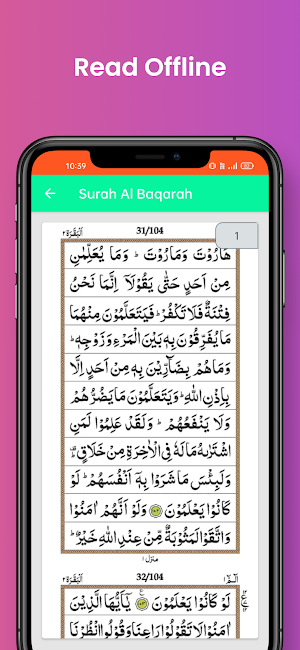 Read Offline
10:39
Surah Al Baqarah
اَلْبَقَرَة ٢
31/104
1
هَارُوْتَ وَمَارُوْتَ ؕ وَمَا يُعَلِّمٰنِ
مِنْ اَحَدٍ حَتّٰى يَقُوْلَاۤ اِنَّمَا نَحْنُ
فِتْنَةٌ فَلَا تَكْفُرْ ؕ فَيَتَعَلَّمُوْنَ مِنْهُمَا
مَا يُفَرِّقُوْنَ بِهٖ بَيْنَ الْمَرْءِ وَزَوْجِهٖ ؕ
وَمَا هُمْ بِضَآرِّيْنَ بِهٖ مِنْ اَحَدٍ اِلَّا
بِاِذْنِ اللّٰهِ ؕ وَيَتَعَلَّمُوْنَ مَا يَضُرُّهُمْ
وَلَا يَنْفَعُهُمْ ؕ وَلَقَدْ عَلِمُوْا لَمَنِ
اشْتَرٰىهُ مَا لَهٗ فِى الْاٰخِرَةِ مِنْ خَلَاقٍ ؕ
وَلَبِئْسَ مَا شَرَوْا بِهٖۤ اَنْفُسَهُمْ ؕ لَوْ
كَانُوْا يَعْلَمُوْنَ وَلَوْ اَنَّهُمْ اٰمَنُوْا
وَاتَّقَوْا لَمَثُوْبَةٌ مِّنْ عِنْدِ اللّٰهِ خَيْرٌ ؕ
منزل ١
اَلْبَقَرَة ٢
32/104
الٓمّٓ ١
لَوْ كَانُوْا يَعْلَمُوْنَ يٰۤاَيُّهَا الَّذِيْنَ
اٰمَنُوْا لَا تَقُوْلُوْا رَاعِنَا وَقُوْلُوا انْظُرْنَا